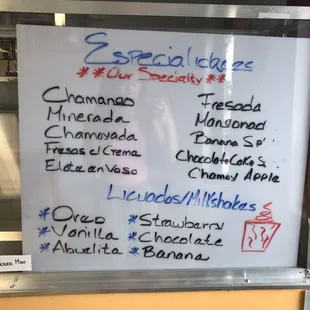 Especialidades
**Our Specialty**
Chamango
Minerada
Chamoyada
Fresas c/ Crema
Elote en Vaso
Fresada
Mangonad
Banana Sp
Chocolate Cake S
Chamoy Apple
Licuados/Milkshakes
*Oreo
*Vanilla
*Abuelita
*Strawberry
*Chocolate
*Banana
Mint